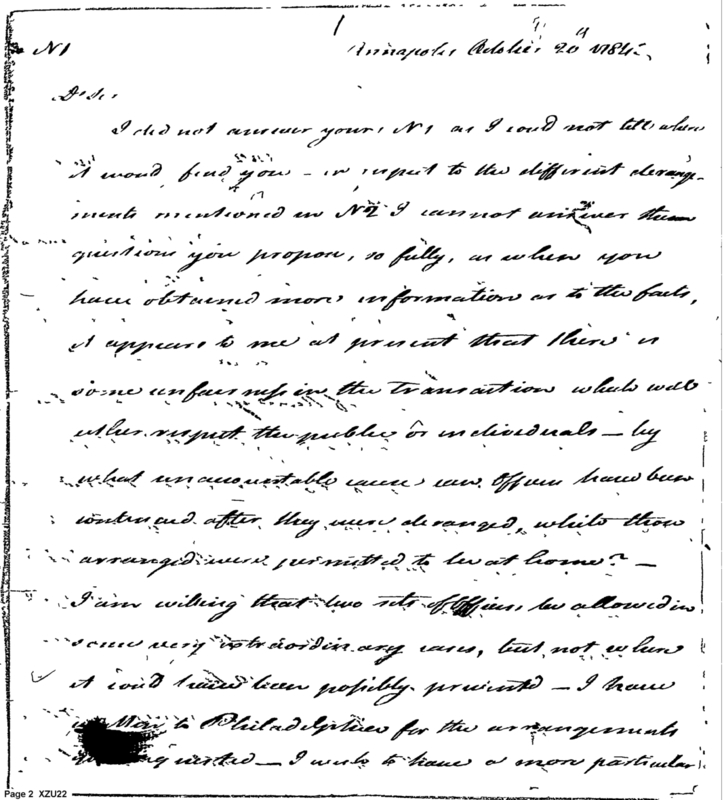 N1
Annapolis October 20th 1784
D Sir
I did not answer your N1 as I could not tell where
it would find you – in respect to the different derange-
ments mentioned in No 2 I cannot answer them
questions you propose, so fully, as when you
have obtained more information as to the facts,
it appears to me at present that there is
some unfairness in the transaction which will
either respect the public or individuals – by
what unaccountable cause can Officers have been
continued after they were deranged, while those
arranged were permitted to be at home? –
I am willing that two sets of Officers be allowed in
some very extraordinary cases, but not where
it could have been possibly prevented – I have
to Philadelphia for the arrangements
– I wish to have a more particular
Page 2 XZU22